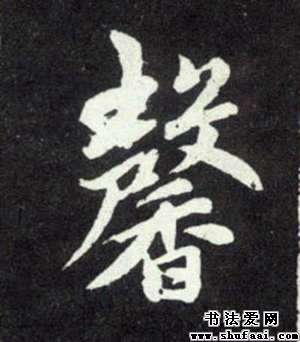 馨
书法爱网
www.shufaai.com